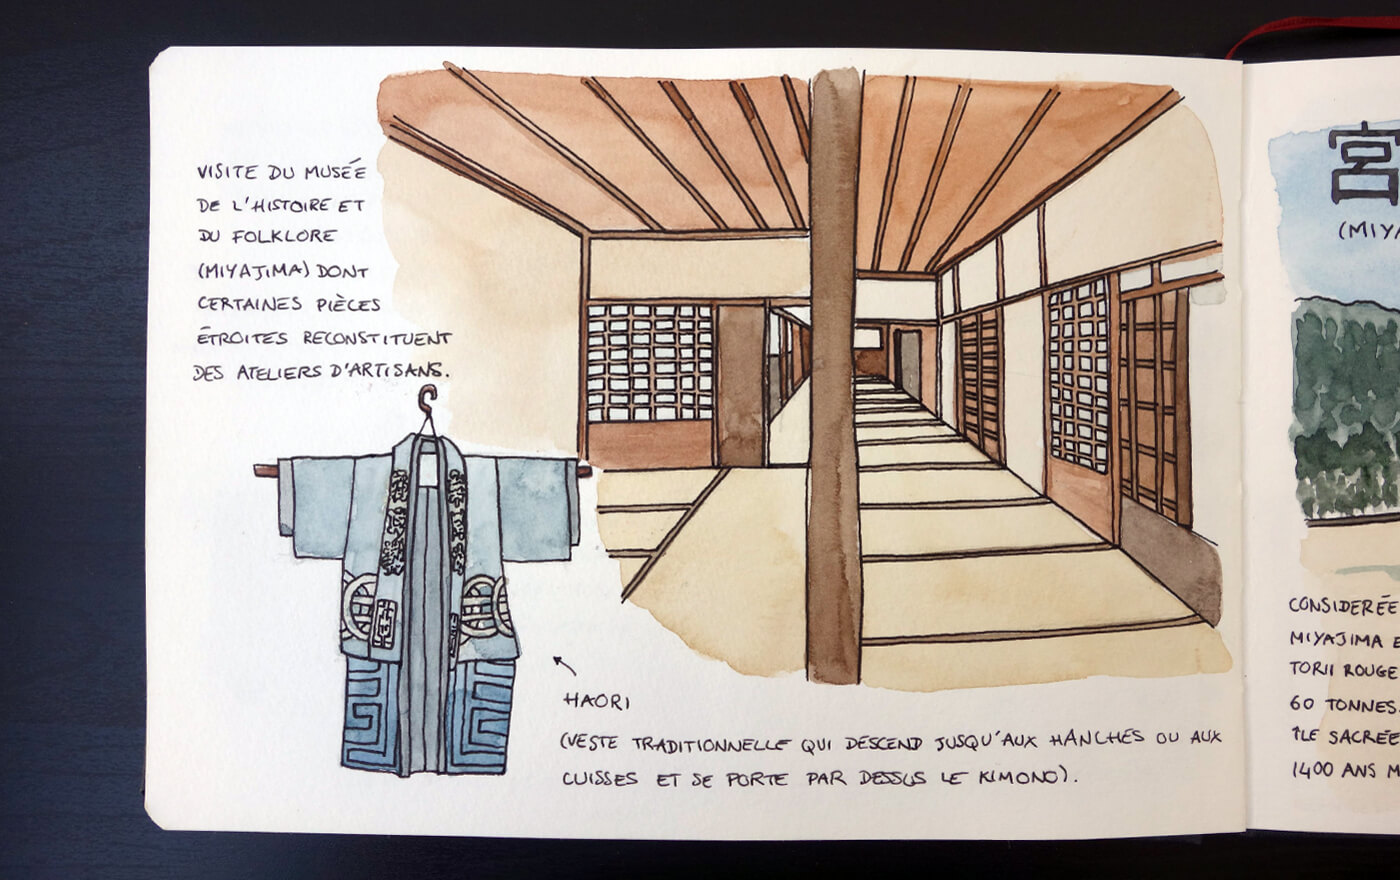 VISITE DU MUSÉE
DE L'HISTOIRE ET
DU FOLKLORE
(MIYAJIMA) DONT
CERTAINES PIÈCES
ÉTROITES RECONSTITUENT
DES ATELIERS D'ARTISANS.
HAORI
(VESTE TRADITIONNELLE QUI DESCEND JUSQU'AUX HANCHES OU AUX
CUISSES ET SE PORTE PAR DESSUS LE KIMONO).
宮
(MIYA
CONSIDERÉE
MIYAJIMA E
TORII ROUGE
60 TONNES.
ÎLE SACRÉE
1400 ANS M